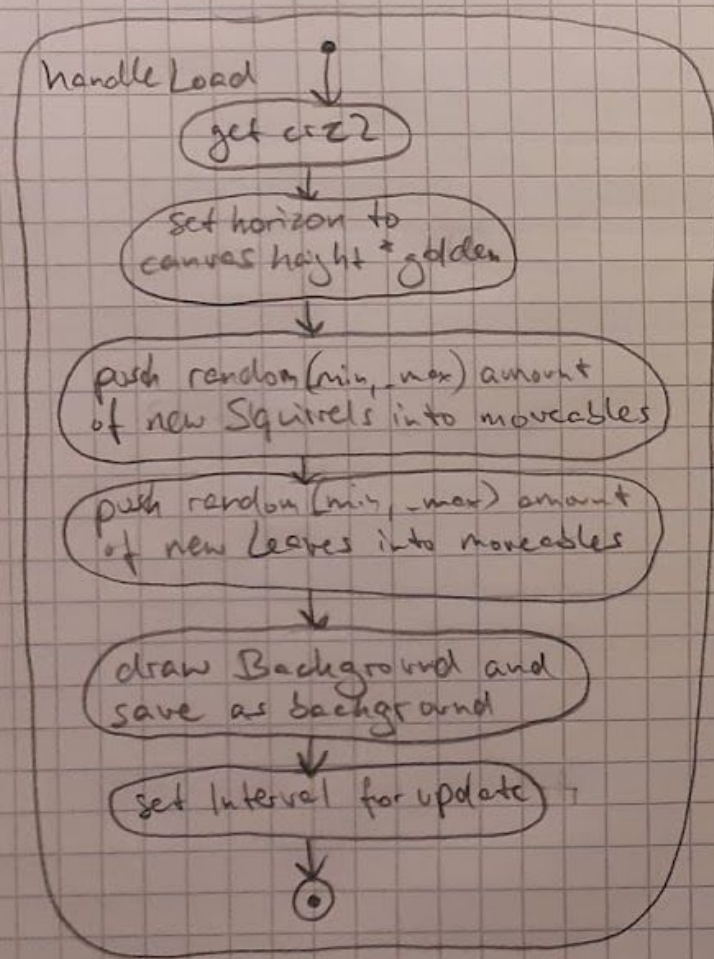 handleLoad
get crc2
set horizon to
canvas height * golden
push random (min, _max) amount
of new Squirrels into moveables
push random (min, _max) amount
of new Leaves into moveables
draw Background and
save as background
set Interval for update